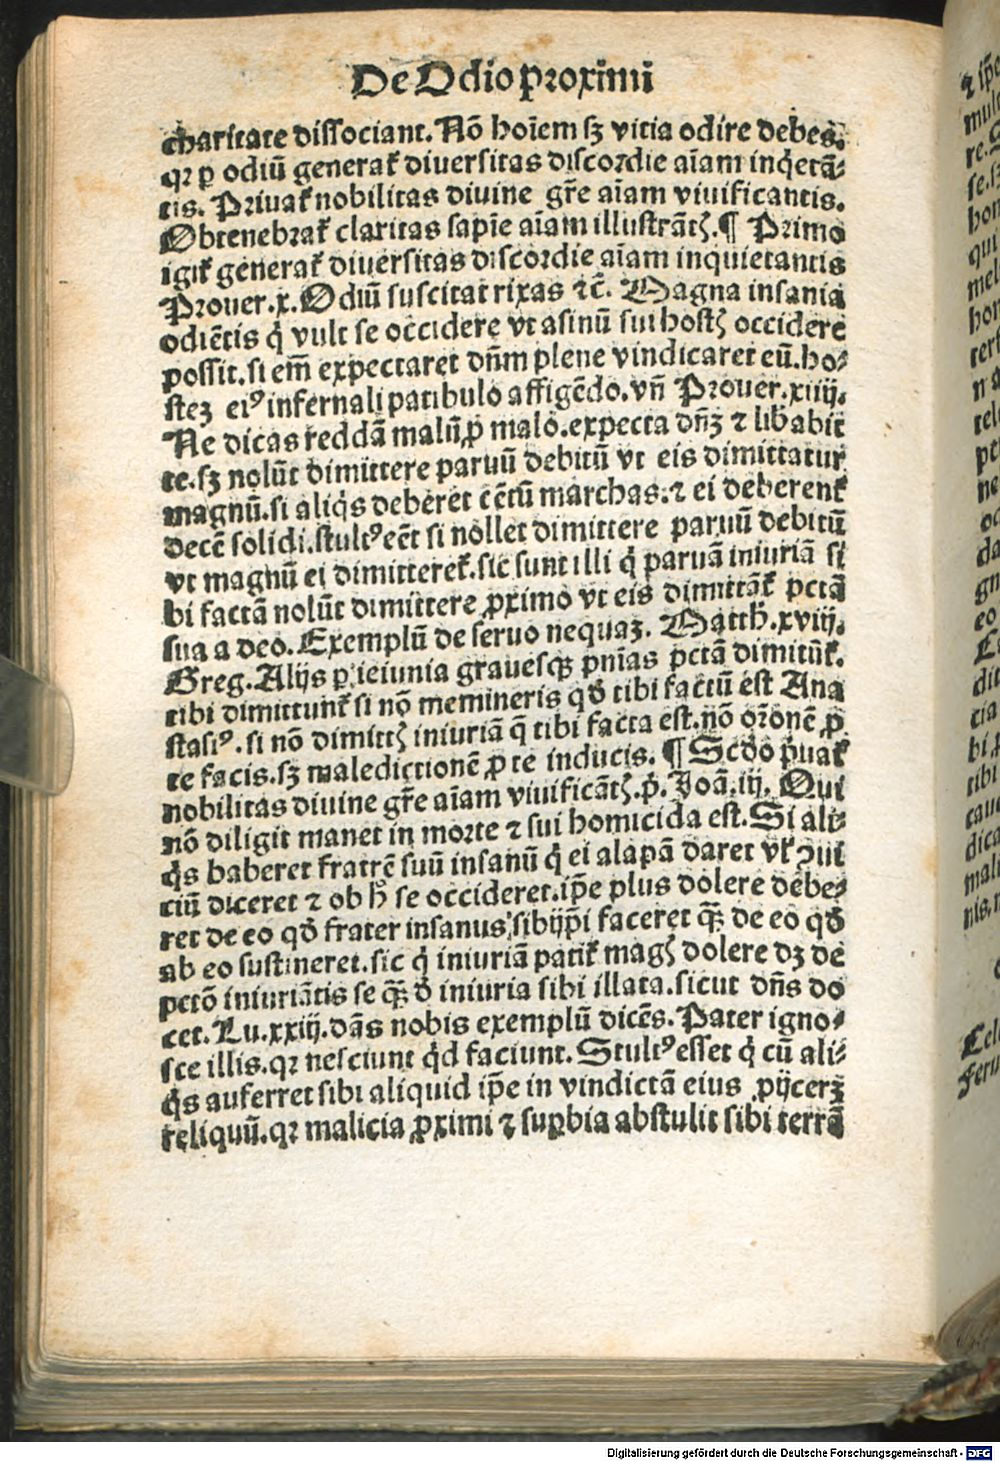 De Odio ꝓximi
charitate dissociant. Nō hoīem sꝫ vitia odire debes.
qꝛ ꝑ odiū generat᷑ diversitas discordie aīam inq̇etā⸗
tis. Privat᷑ nobilitas divine gr̄e aīam vivificantis.
Obtenebrat᷑ claritas sapīe aīam illustrātꝭ. ¶ Primo
igit᷑ generat᷑ diversitas discordie aīam inquietantis
Prouer.x. Odiū suscitat rixas ⁊c̄. Magna insania
odiētis q̇ vult se occidere vt asinū sui hostꝭ occidere
possit. si em̄ expectaret dn̄m plene vindicaret eū. ho⸗
stez eiꝰ infernali patibulo affigēdo. vn̄ Prouer.xxiiij.
Ne dicas reddā malū ꝓ malo. expecta dn̄ꝫ ⁊ liberabit
te. sꝫ nolūt dimittere paruū debitū vt eis dimittatur
magnū. si aliq̇s deberet cētū marchas: ⁊ ei deberent᷑
decē solidi. stultꝰ eēt si nollet dimittere paruū debitū
vt magnū ei dimitteret᷑. sic sunt illi q̇ paruā iniuriā si
bi factā nolūt dimittere ꝓximo vt eis dimittāt᷑ pctā
sua a deo. Exemplū de seruo nequaꝫ. Matth.xviij.
Greg. Alijs ꝑ ieiunia grauesqꝫ pn̄ias pctā dimitūt᷑.
tibi dimittunt᷑ si nō memineris qđ tibi factū est Ana
stasiꝰ. si nō dimittꝭ iniuriā q̄ tibi facta est. nō or̄onē ꝓ
te facis. sꝫ maledictionē ꝓ te inducis. ¶ Scđo ṗuat᷑
nobilitas divine gr̄e aīam vivificātꝭ. ṗ. Joā.iij. Qui
nō diligit manet in morte ⁊ sui homicida est. Si ali⸗
q̇s haberet fratrē suū insanū q̇ ei alapā daret vl᷑ ꝯui
ciū diceret ⁊ ob h̄ se occideret. ip̄e plus dolere debe⸗
ret de eo qđ frater insanus sibijp̄i faceret qꝫ̄ de eo qđ
ab eo sustineret. sic q̇ iniuriā patit᷑ magꝭ dolere dꝫ de
pctō iniuriātis se qꝫ̄ đ iniuria sibi illata. sicut dn̄s do
cet. Lu.xxiij. dās nobis exemplū dicēs. Pater igno⸗
sce illis. qꝛ nesciunt q̇d faciunt. Stultꝰ esset q̇ cū ali⸗
q̇s auferret sibi aliquid ip̄e in vindictā eius ꝓijceret
reliquū. qꝛ malicia ꝓximi ⁊ suꝑbia abstulit sibi terrā
Digitalisierung gefördert durch die Deutsche Forschungsgemeinschaft - DFG